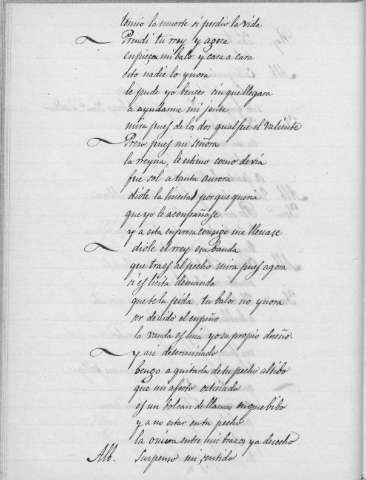 temio la muerte si perdio la vida
Prendi tu rrey y agora
enpieça mi balor y cara a cara
esto nadie lo ygnora
le pude yo bençer sin que llegara
a ayudarme mi jente
mira pues de los dos qual fue el valiente
Preso pues mi señora
la rreyna, le estimo como devia
fue sol a tanta aurora
diole la livertad porque queria
que yo le aconpañase
y a esta enpresa consigo me llevase
diole el rrey esa banda
que traes al pecho mira pues agora
si es licita demanda
que te la pida tu balor no ygnora
ser devido el enpeño
la venda es mia yo su propio dueño
y asi determinado
bengo a quitarla de tu pecho altibo
que mi afecto
es un bolcan de llamas en que bibo
y a no estar en tu pecho
la entre mis brazos ya desecho
Alb. Suspenso mi sentido